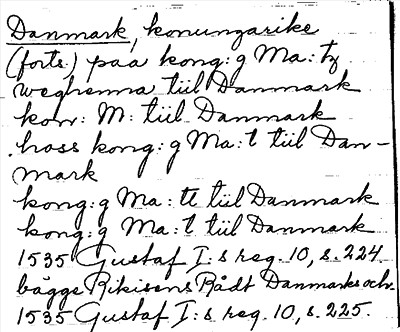 Danmark, konungarike
(forts.) paa kong: g Ma: tz
weghenna tiil Danmark
kon: M: tiil Danmark
hoss kong: g Ma: t tiil Dan-
mark
kong: g Ma: tt tiil Danmark
kong: g Ma: t tiil Danmark
1535 Gustaf I: s reg. 10, s. 224.
bägge Rikisens Rådt Danmarks och
1535 Gustaf I: s reg. 10, s. 225.